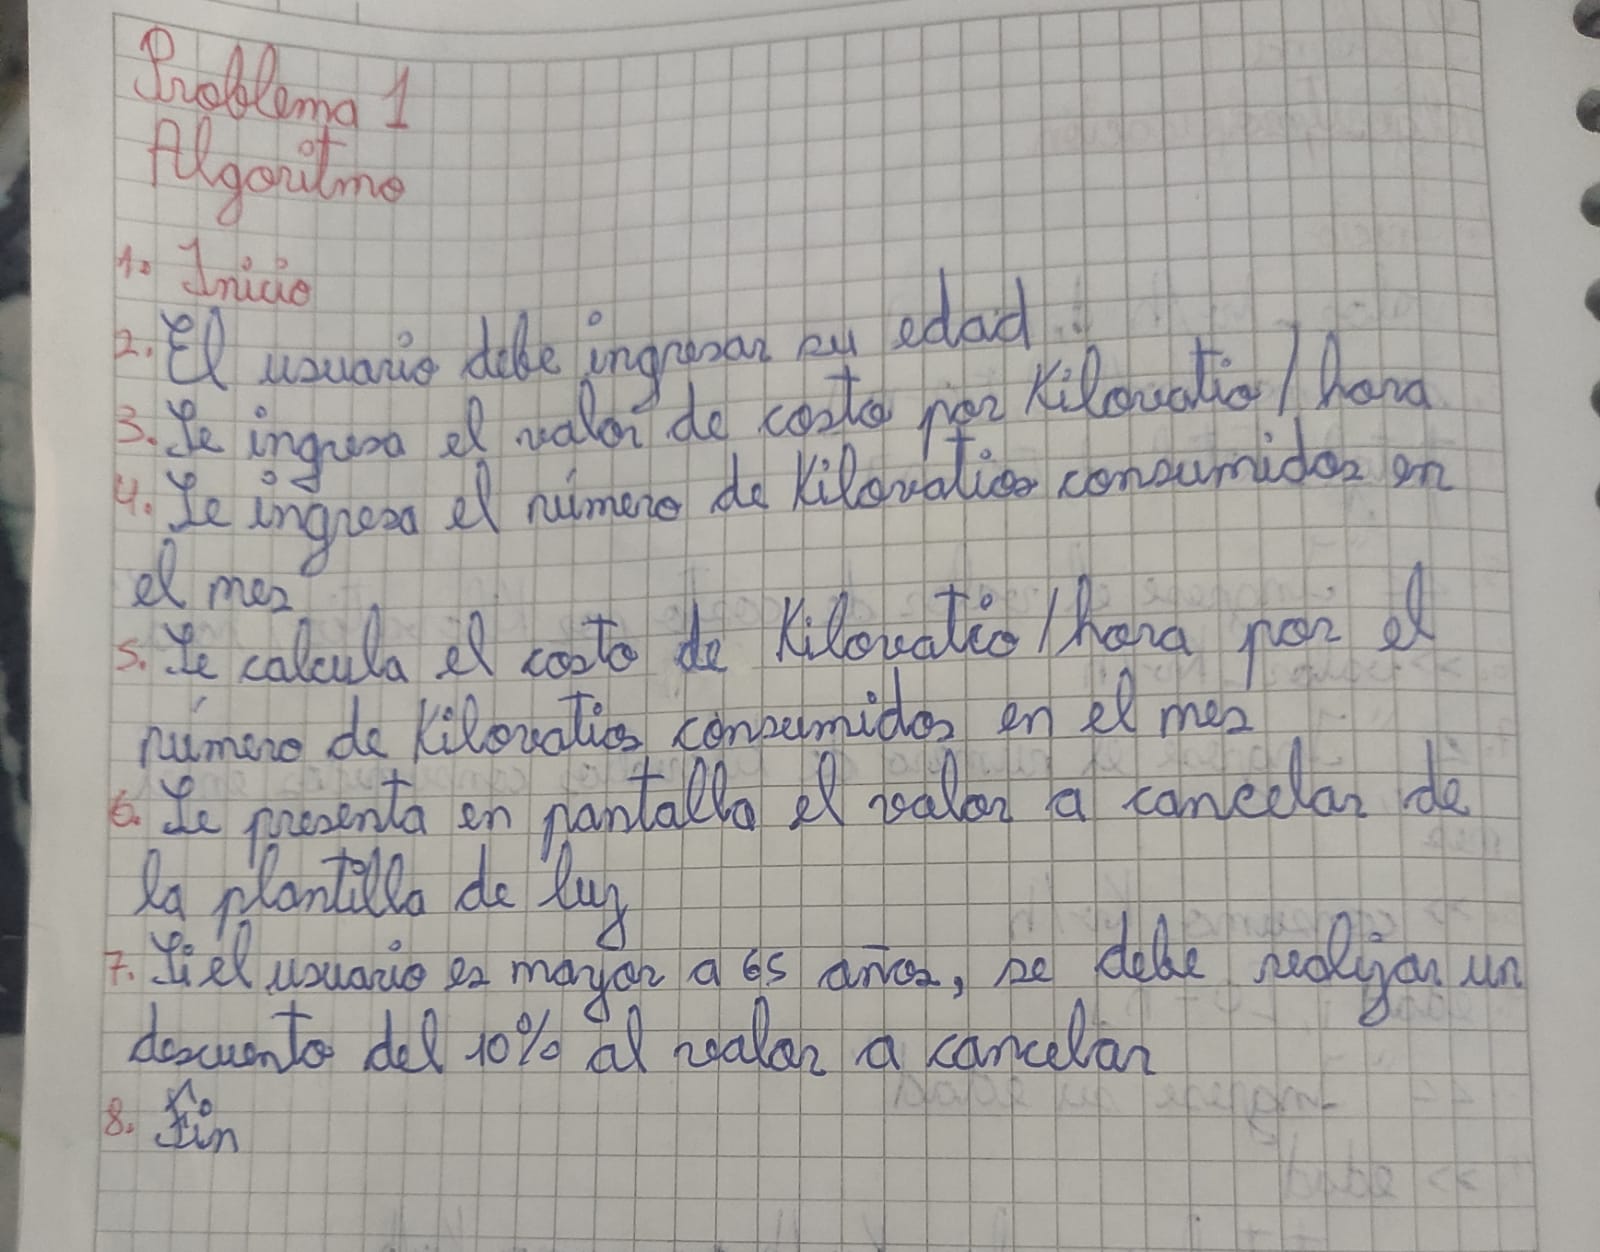 Problema 1
Algoritmo
1. Inicio
2. El usuario debe ingresar su edad
3. Se ingresa el valor de costo por Kilovatio/hora
4. Se ingresa el número de Kilovatios consumidos en
el mes
5. Se calcula el costo de Kilovatio/hora por el
número de Kilovatios consumidos en el mes
6. Se presenta en pantalla el valor a cancelar de
la plantilla de luz
7. Si el usuario es mayor a 65 años, se debe realizar un
descuento del 10% al valor a cancelar
8. Fin